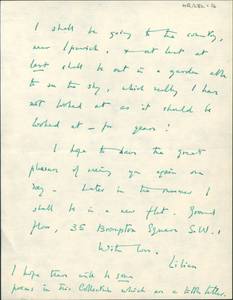 I shall be going to the country,
near Ipswich, & at least at
least shall be out in a garden able
to see the sky, which really I have
not looked at as it should be
looked at – for years!
I hope to have the great
pleasure of seeing you again one
day. Later in the summer I
shall be in a new flat. Ground
floor, 35 Brompton Square S.W.1.
With love.
Lilian
I hope there will be some
poems in this Collection which are a little better.